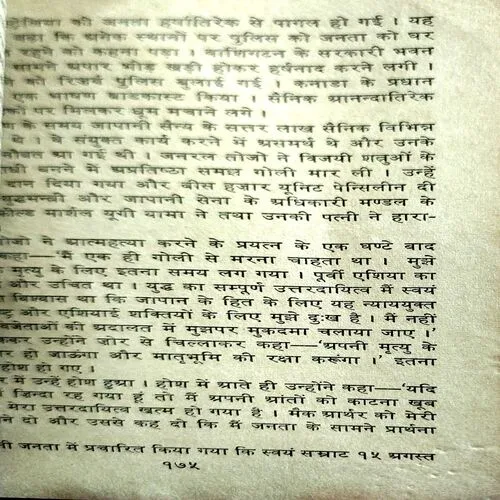 की जनता हर्षातिरेक से पागल हो गई । यह
कहा कि अनेक स्थानों पर पुलिस को जनता को घर
रहने को कहना पड़ा । वाशिंगटन के सरकारी भवन
सामने अपार भीड़ खड़ी होकर हर्षनाद करने लगी ।
को रिजर्व पुलिस बुलाई गई । कनाडा के प्रधान
एक भाषण ब्राडकास्ट किया । सैनिक आनन्दातिरेक
पर मिलकर धूम मचाने लगे ।
के समय जापानी सैन्य के सत्तर लाख सैनिक विभिन्न
थे । वे संयुक्त कार्य करने में असमर्थ थे और उनके
आ गई थी । जनरल तोजो ने विजयी शत्रुओं के
बनने में अप्रतिष्ठा समझ गोली मार ली । उन्हें
दान दिया गया और बीस हजार यूनिट पेन्सिलीन दी
युद्धमन्त्री और जापानी सेना के अधिकारी मण्डल के
फील्ड मार्शल यूगी यामा ने तथा उनकी पत्नी ने हारा-
तोजो ने आत्महत्या करने के प्रयत्न के एक घण्टे बाद
कहा—'मैं एक ही गोली से मरना चाहता था । मुझे
मृत्यु के लिए इतना समय लग गया । पूर्वी एशिया का
और उचित था । युद्ध का सम्पूर्ण उत्तरदायित्व मैं स्वयं
विश्वास था कि जापान के हित के लिए यह न्याययुक्त
और एशियाई शक्तियों के लिए मुझे दुःख है । मैं नहीं
विजेताओं की अदालत में मुझपर मुकदमा चलाया जाए ।'
उन्होंने ज़ोर से चिल्लाकर कहा—'अपनी मृत्यु के
हो जाऊंगा और मातृभूमि की रक्षा करूंगा ।' इतना
बेहोश हो गए ।
में उन्हें होश हुआ । होश में आते ही उन्होंने कहा—'यदि
ज़िन्दा रह गया हूं तो मैं अपनी आंतों को काटना खूब
मेरा उत्तरदायित्व खत्म हो गया है । मैक आर्थर को मेरी
दो और उससे कह दो कि मैं जनता के सामने प्रार्थना
जनता में प्रचारित किया गया कि स्वयं सम्राट १५ अगस्त
१७५